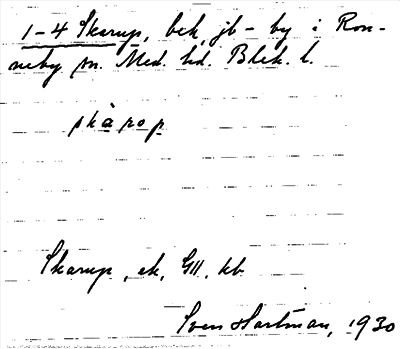 1-4 Skarup, bek. jb-by i Ron-
neby sn. Med. hd. Blek. l.
skàrop
Skarup, ek, GII, kb
Sven Hartman, 1930